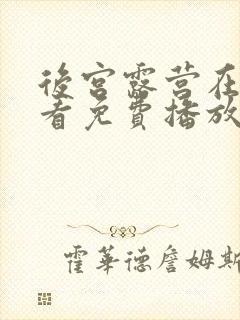 後宮露营在
看免費播放
霍華德詹姆斯